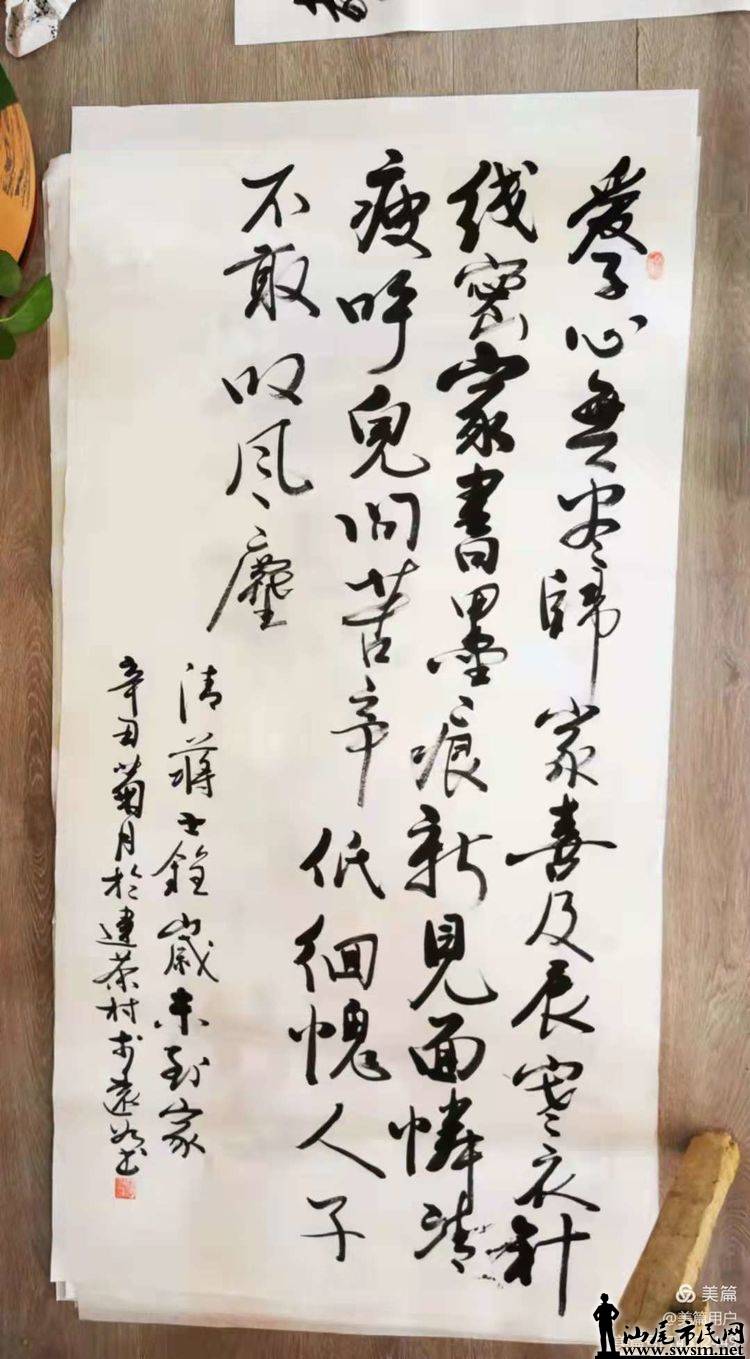 爱子心無尽歸家喜及辰寒衣针
线密家書墨痕新見面憐清
瘦呼兒问苦辛低徊愧人子
不敢叹风塵
清蒋士銓歲末到家
辛丑菊月於建茶村书
美篇
@美篇用户
汕尾市民网
www.swsm.net